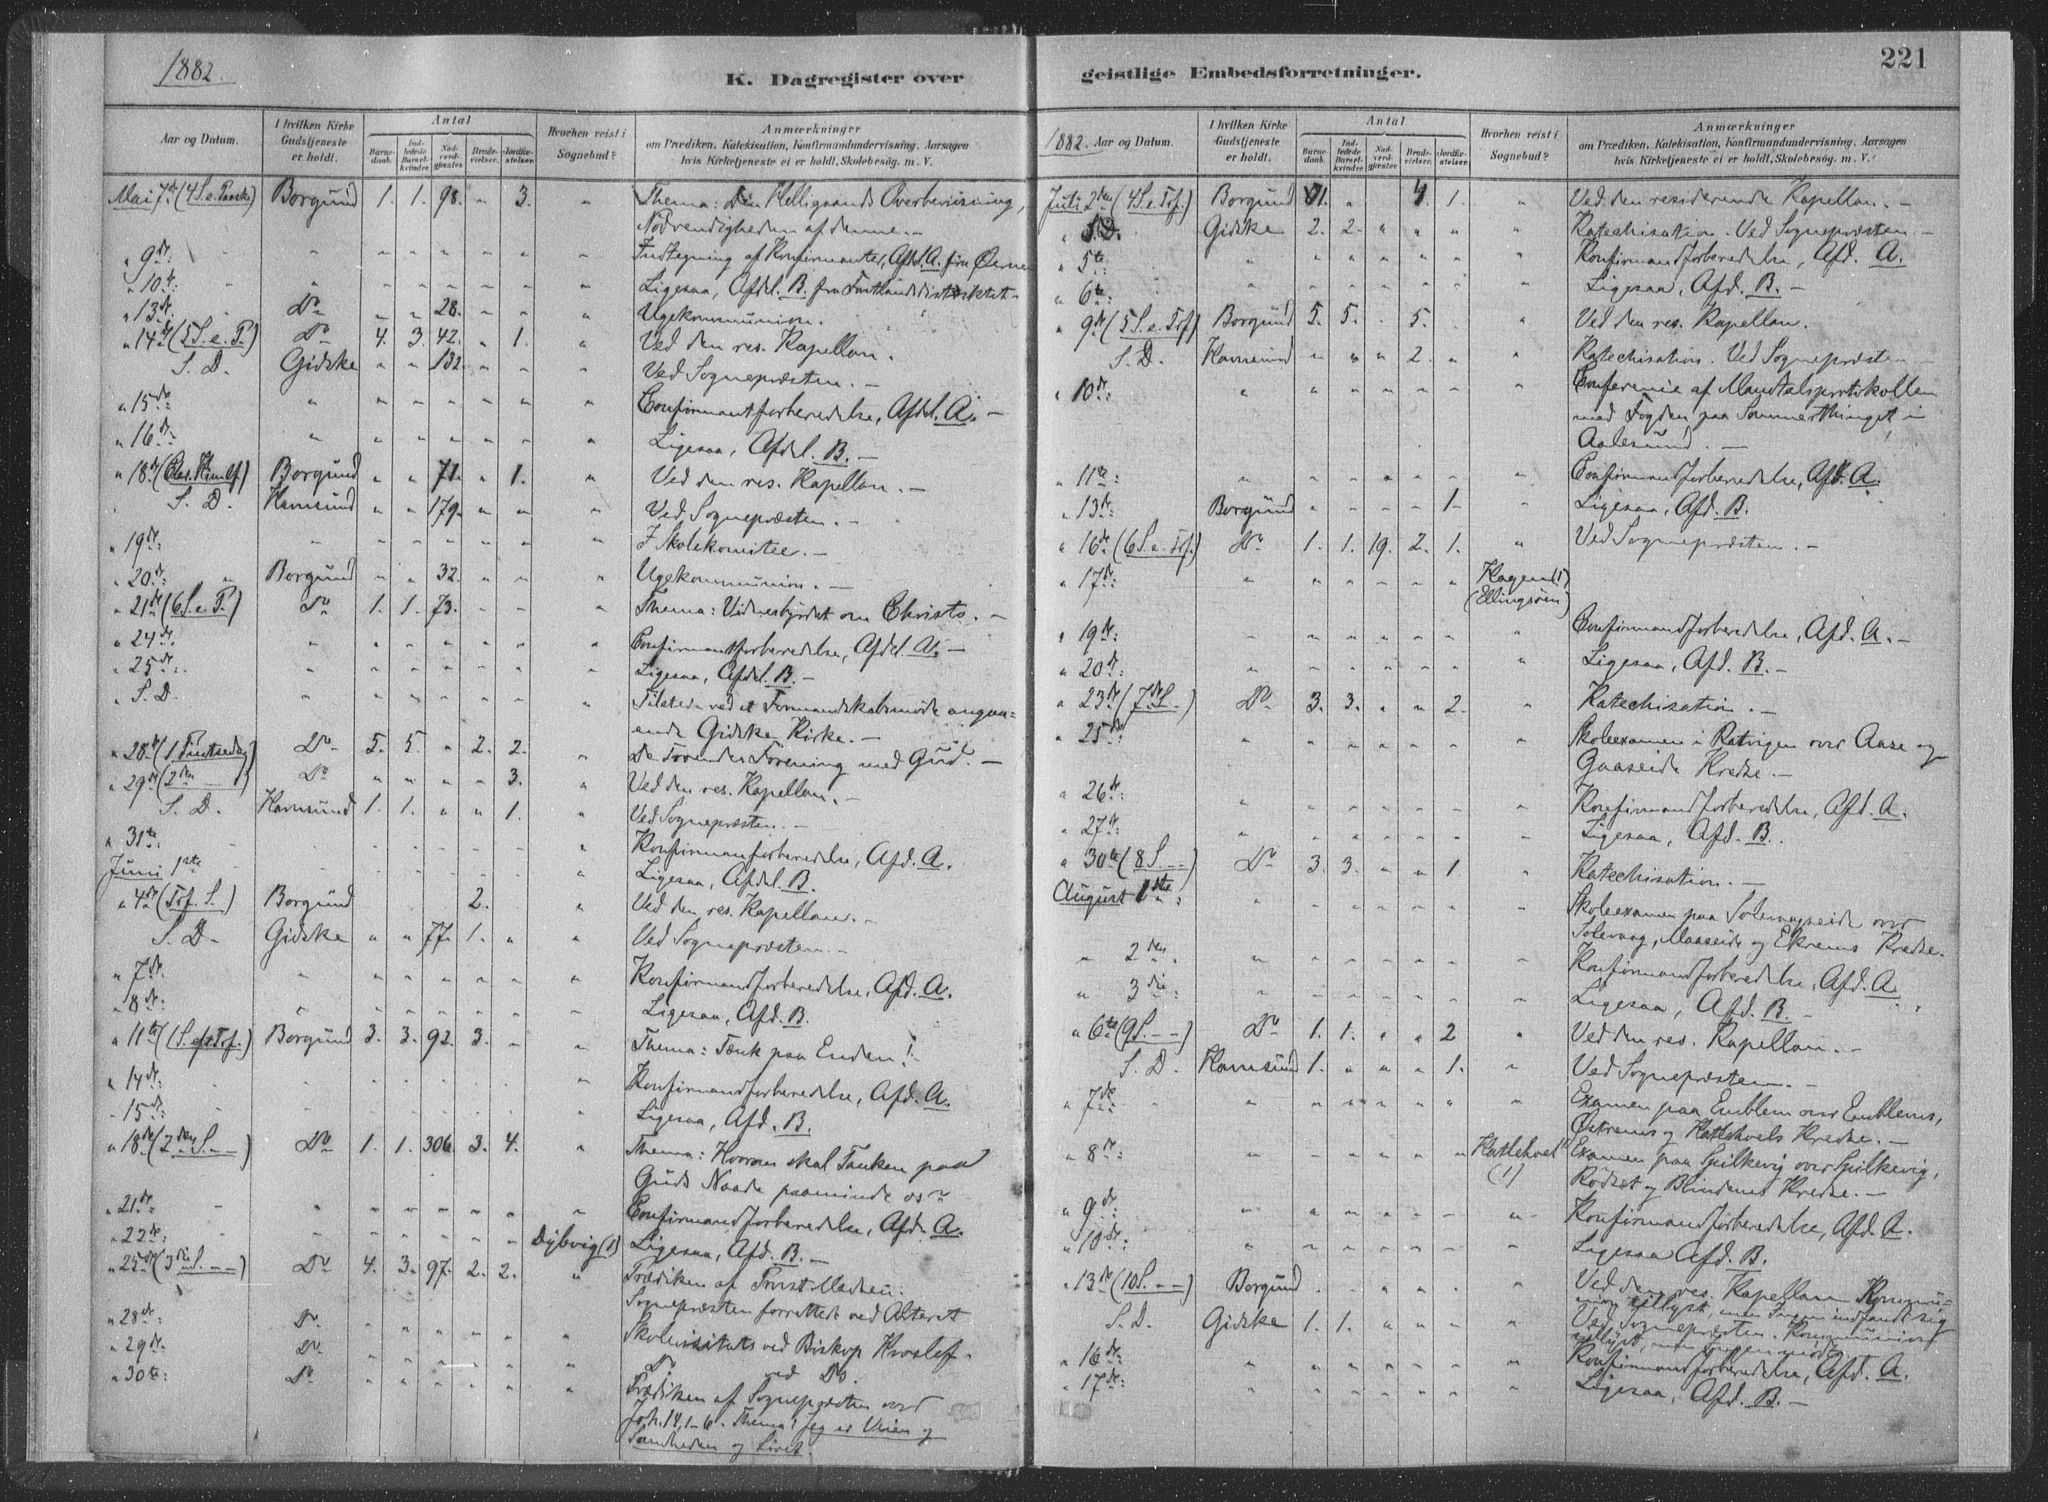 1882.
K. Dagregister over
Aar og Datum. I hvilken Kirke Gudstjeneste er holdt. Antal Barnedaab. Indledede Barselkvinder. Nadverdgjæster. Brudevielser. Jordfæstelser. Hvorhen reist i Sognebud? Anmærkninger om Prædiken, Katekisation, Konfirmandundervisning. Aarsagen hvis Kirketjeneste ei er holdt, Skolebesög. m. V.
Mai 7de (4 S. e. Paaske) Borgund 1. 1. 98. " 3. " Thema: Den Helligaands Overbevisning,
Nødvendigheden af denne. —
" 9de: Indtegning af Konfirmanter, Afdel. A. fra Øerne
" 10de: Ligesaa, Afdel. B. fra Fastlandsdistriktet.
" 13de: Do 28. Ugekommunion.
" 14de (5 S. e. P.) Do 4. 3. 42. " 1. Ved den res. Kapellan.
S. D. Gidske " " 132. Ved Sognepræsten. —
" 15de: Confirmantforberedelse, Afdel. A. —
" 16de: Ligesaa, Afdel. B. —
" 18de Borgund " " 71. " 1. Ved den res. Kapellan. —
S. D. Hamsund " " 179. Ved Sognepræsten. —
" 19de: I Skolekomitee. —
" 20de: Borgund " " 32. Ugekommunion. —
" 21de (6 S. e. P.) Do 1. 1. 73. Thema: Vidnesbyrdet om Christo. —
" 24de: Confirmantforberedelse, Afdel. A. —
" 25de: Ligesaa, Afdel. B. —
" S. D. Tilstede ved et Formandskabsmøde angaa-
ende Gidske Kirke. —
" 28de (1 Pintsedag) Do 5. 5. " 2. 2. De Troendes Forening med Gud. —
" 29de (2den — ) Do 3. Ved den res. Kapellan. —
S. D. Hamsund 1. 1. " " 1. Ved Sognepræsten. —
" 31te: Konfirmanforberedelse, Afd. A.
Juni 1ste Ligesaa, Afdel. B.
" 4de (Tref. S.) Borgund 2. Ved den res. Kapellan. —
S. D. Gidske " " 77. 1. " Ved Sognepræsten. —
" 7de: Konfirmandforberedelse, Afd. A.
" 8de: Ligesaa, Afd. B.
" 11te (1 S. ef. Tref.) Borgund 3. 3. 92. 3. Thema: Tænk paa Enden!
" 14de: Konfirmandforberedelse, Afd. A.
" 15de: Ligesaa, Afd. B.
" 18de (2den S. — —) Do 1. 1. 306. 3. 4. Thema: Hvorom skal Tanken paa
Guds Naade paaminde os?
" 21de: Confirmandforberedelse, Afd. A.
" 22de: Dybvig (1) Ligesaa, Afd. B. —
" 25de (3die S. — —) Do 4. 3. 97. 2. 2. Prædiken af
Sognepræsten forrettede ved Alteret
" 28de: Do Skolevisitats ved Biskop Hvoslef.
" 29de: Do Do ved Do.
" 30te: Do Prædiken af Sognepræsten over
Joh. 14, 1-6. Thema: Jeg er Veien og
Sandheden og Livet.
geistlige Embedsforretninger.
221
1882. Aar og Datum. I hvilken Kirke Gudstjeneste er holdt. Antal Barnedaab. Indledede Barselkvinder. Nadverdgjæster. Brudevielser. Jordfæstelser. Hvorhen reist i Sognebud? Anmærkninger om Prædiken, Katekisation, Konfirmandundervisning. Aarsagen hvis Kirketjeneste ei er holdt, Skolebesög. m. V.
Juli 2den (4 S. e. Tref.) Borgund 1. 1. Ved den residerende Kapellan. —
" S. D. Gidske 2. 2. Katechisation. Ved Sognepræsten. —
" 5te: Konfirmandforberedelse, Afd. A.
" 6te Ligesaa, Afd. B. —
" 9de (5 S. e. Tref.) Borgund 5. 5. 5. Ved den res. Kapellan.
S. D. Hamsund 2. Katechisation. Ved Sognepræsten
" 10de: Conference af Mandtalsprotokollen
med Fogden paa Sommerthinget i
Aalesund. —
" 11te: Confirmandforberedelse, Afd. A.
" 13de: Borgund 1. Ligesaa, Afd. B.
" 16de (6 S. e. Tref.) Do 1. 1. 19. 2. 1. Ved Sognepræsten. —
" 17de: Hagen (1)
(Ellingsøen)
" 19de: Confirmandforberedelse, Afd. A. —
" 20de: Ligesaa, Afd. B. —
" 23de (7de S. —) Do 3. 3. " " 2. Katechisation. —
" 25de: Skoleexamen i Ratvigen over Aase og
Gaaseide Kredse. —
" 26de: Konfirmandforberedelse, Afd. A.
" 27de: Ligesaa, Afd. B.
" 30te (8 S. — —) Do 3. 3. " " 1. Katechisation. —
August 1ste: Skoleexamen paa Solevaagseide over
Solevaag, Maaseide og Ekrems Kredse.
" 2den. Konfirmandforberedelse, Afd. A.
" 3die: Ligesaa, Afd. B. —
" 6te (9 S. — —) Do 1. 1. " " 2 Ved den res. Kapellan. —
S. D. Hamsund 1. " " " 1. Ved Sognepræsten. —
" 7de: Examen paa Emblem over Emblems,
Østrems og Hatlehoels Kredse. —
" 8de: Hatlehoel (1) Examen paa Spilkevig over Spilkevig,
Rødset og Blindems Kredse. —
" 9de: Konfirmandforberedelse, Afd. A.
" 10de: Ligesaa Afd. B.
" 13de (10 S. — —) Borgund Ved den res. Kapellan. Kommu-
nion tillyst, men Ingen indfandt sig
S. D. Gidske 1. 1. Ved Sognepræsten. Kommunion
tillyst, men Ingen mødte.
" 16de: Konfirmandforberedelse, Afd. A.
" 17de: Ligesaa, Afd. B. —